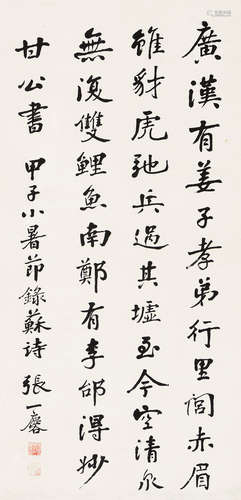 廣漢有姜子孝弟行里閭赤眉
雖豺虎弛兵過其墟至今空清泉
無復雙鯉魚南鄭有李郃得妙
甘公書 甲子小暑節錄蘇詩 張一麐